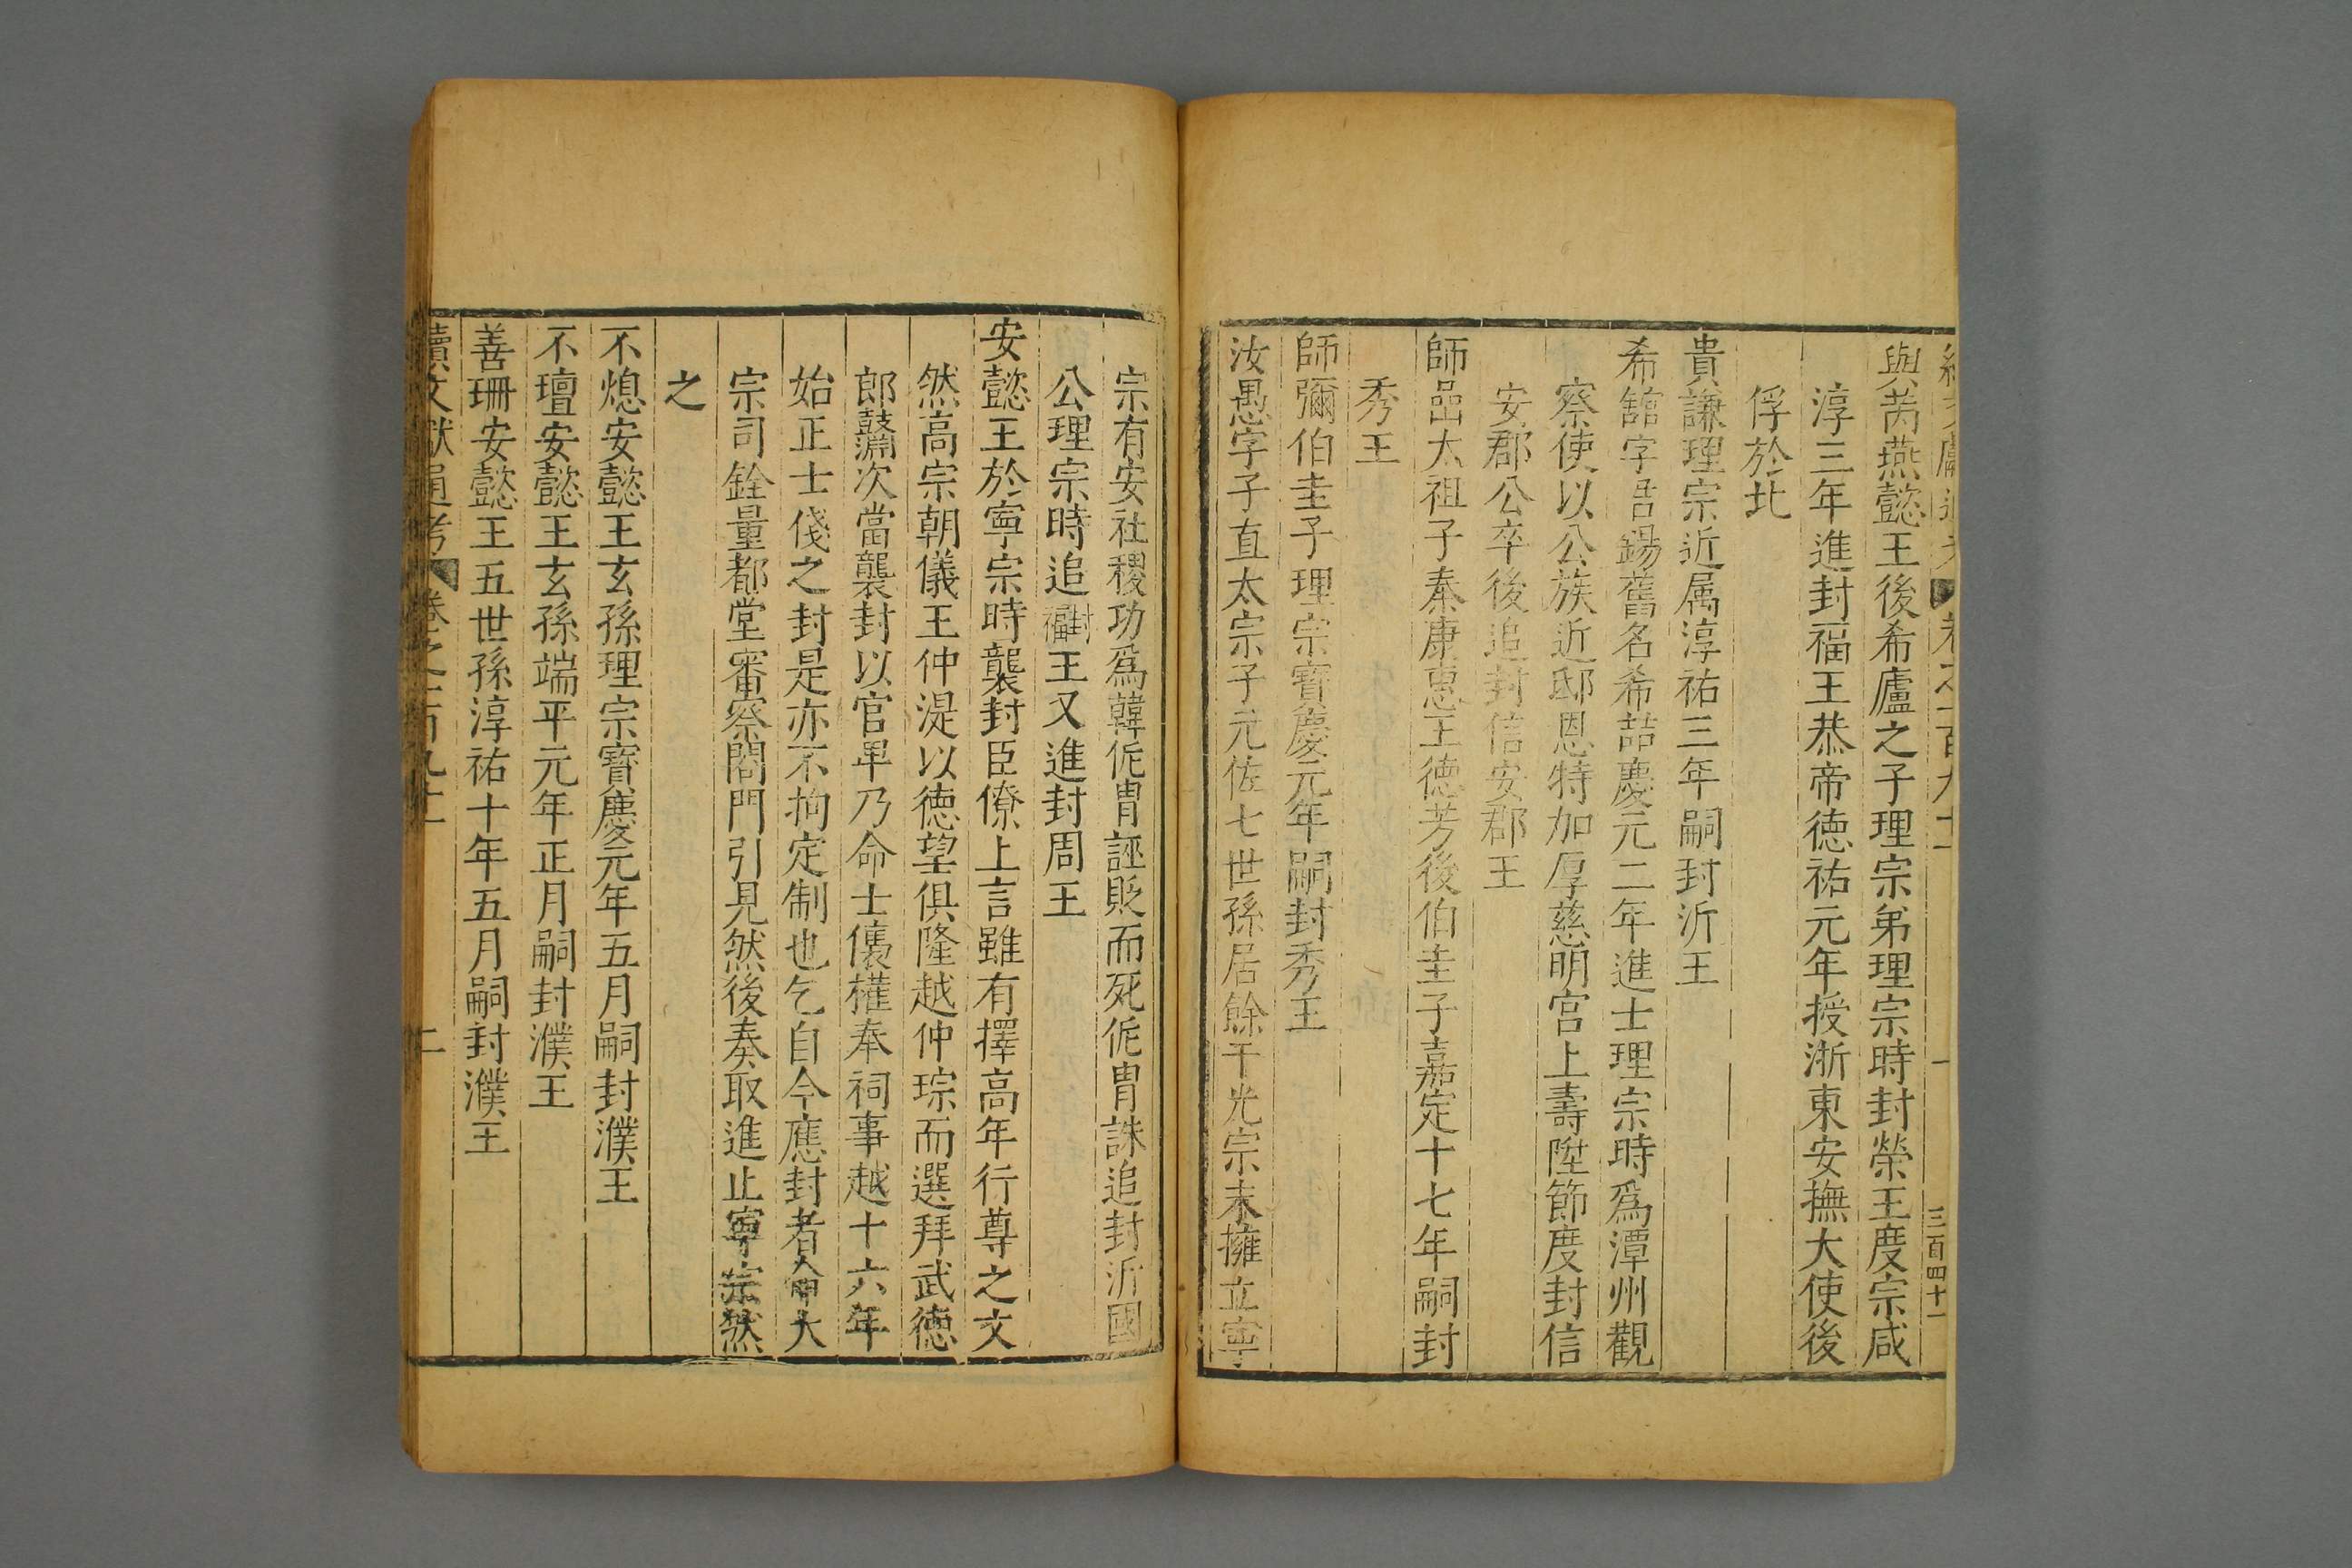 與芮燕懿王後希廬之子理宗弟理宗時封榮王度宗咸
淳三年進封福王恭帝德祐元年授浙東安撫大使後
俘於北
貴謙理宗近属淳祐三年嗣封沂王
希錧字君錫舊名希喆慶元二年進士理宗時爲潭州觀
察使以公族近邸恩特加厚慈明宫上壽陞節度封信
安郡公卒後追封信安郡王
師嵒太祖子秦康惠王德芳後伯圭子嘉定十七年嗣封
秀王
師彌伯圭子理宗寳慶元年嗣封秀王
汝愚字子直太宗子元佐七世孫居餘干光宗末擁立寧
宗有安社稷功爲韓侂胄誣貶而死侂胄誅追封沂國
公理宗時追封福王又進封周王
安懿王於寧宗時襲封臣僚上言雖有擇高年行尊之文
然高宗朝儀王仲湜以德望俱隆越仲琮而選拜武德
郎䶒次當襲封以官卑乃命士儴權奉祠事越十六年
始正士俴之封是亦不拘定制也乞自今應封者命大
宗司銓量都堂審察閤門引見然後奏取進止寧宗然
之
不熄安懿王玄孫理宗寳慶元年五月嗣封濮王
不璮安懿王玄孫端平元年正月嗣封濮王
善珊安懿王五世孫淳祐十年五月嗣封濮王
續文獻通考 卷之二百九十二 二